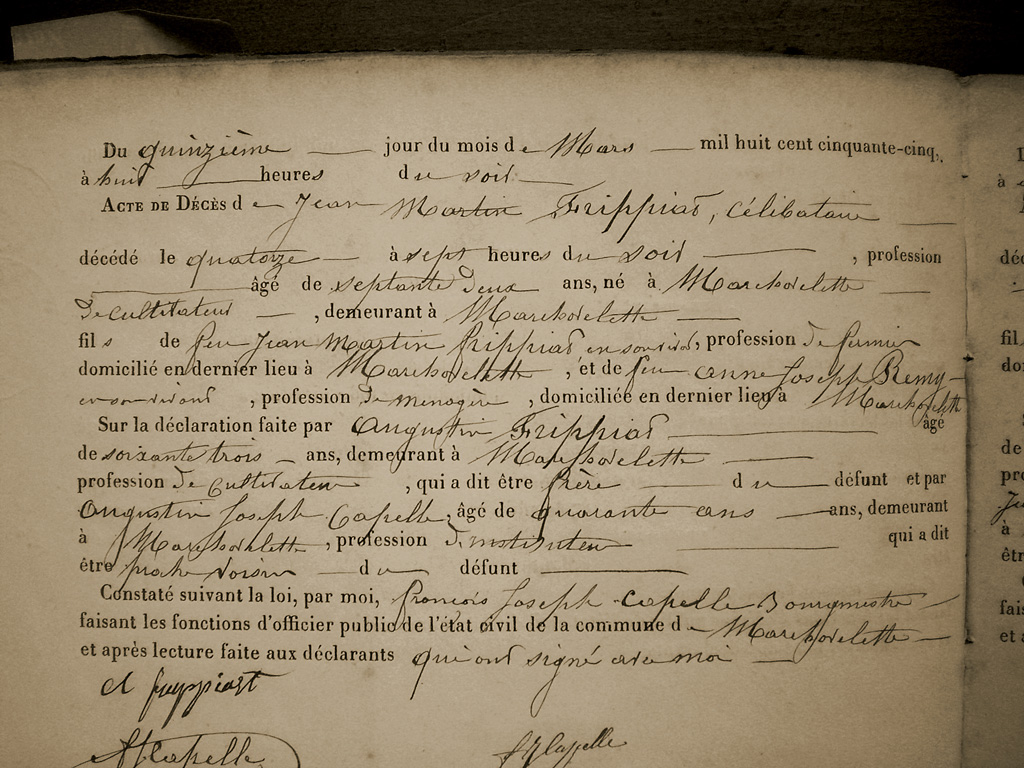 Du quinzième jour du mois de Mars mil huit cent cinquante-cinq,
à huit heures du soir
ACTE DE DÉCÈS de Jean Martin Frippiat, Célibataire
décédé le quatorze à sept heures du soir , profession
âgé de septante deux ans, né à Marchovelette
De cultivateur , demeurant à Marchovelette
fils de feu Jean Martin frippiat, en son vivant, profession De fermier
domicilié en dernier lieu à Marchovelette , et de feu anne Joseph Remy
en son vivant , profession De menagère , domiciliée en dernier lieu à Marchovelette
Sur la déclaration faite par Augustin Frippiat âgé
de soixante trois ans, demeurant à Marchovelette
profession De Cultivateur , qui a dit être frère du défunt et par
Augustin Joseph Capelle, âgé de quarante ans ans, demeurant
à Marchovelette , profession D'instituteur qui a dit
être proche voisin du défunt
Constaté suivant la loi, par moi, françois Joseph Capelle Bourgmestre
faisant les fonctions d'officier public de l'état civil de la commune de Marchovelette
et après lecture faite aux déclarants qui ont signé avec moi
A frippiat
AJCapelle fJCapelle